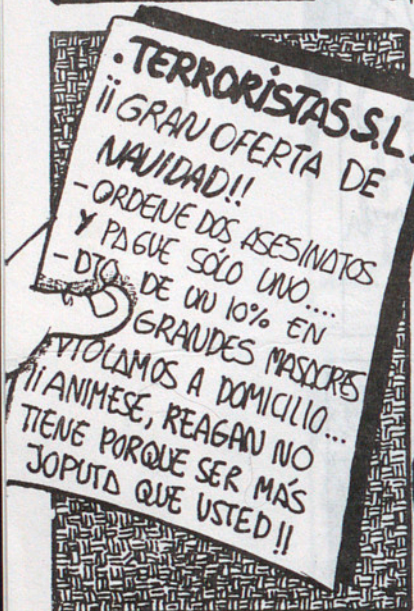 . TERRORISTAS S.L.
¡¡GRAN OFERTA DE
NAVIDAD!!
- ORDENE DOS ASESINATOS
Y PAGUE SÓLO UNO....
- DTO. DE UN 10% EN
GRANDES MASACRES
VIOLAMOS A DOMICILIO...
¡¡ANIMESE, REAGAN NO
TIENE PORQUE SER MÁS
JOPUTA QUE USTED!!